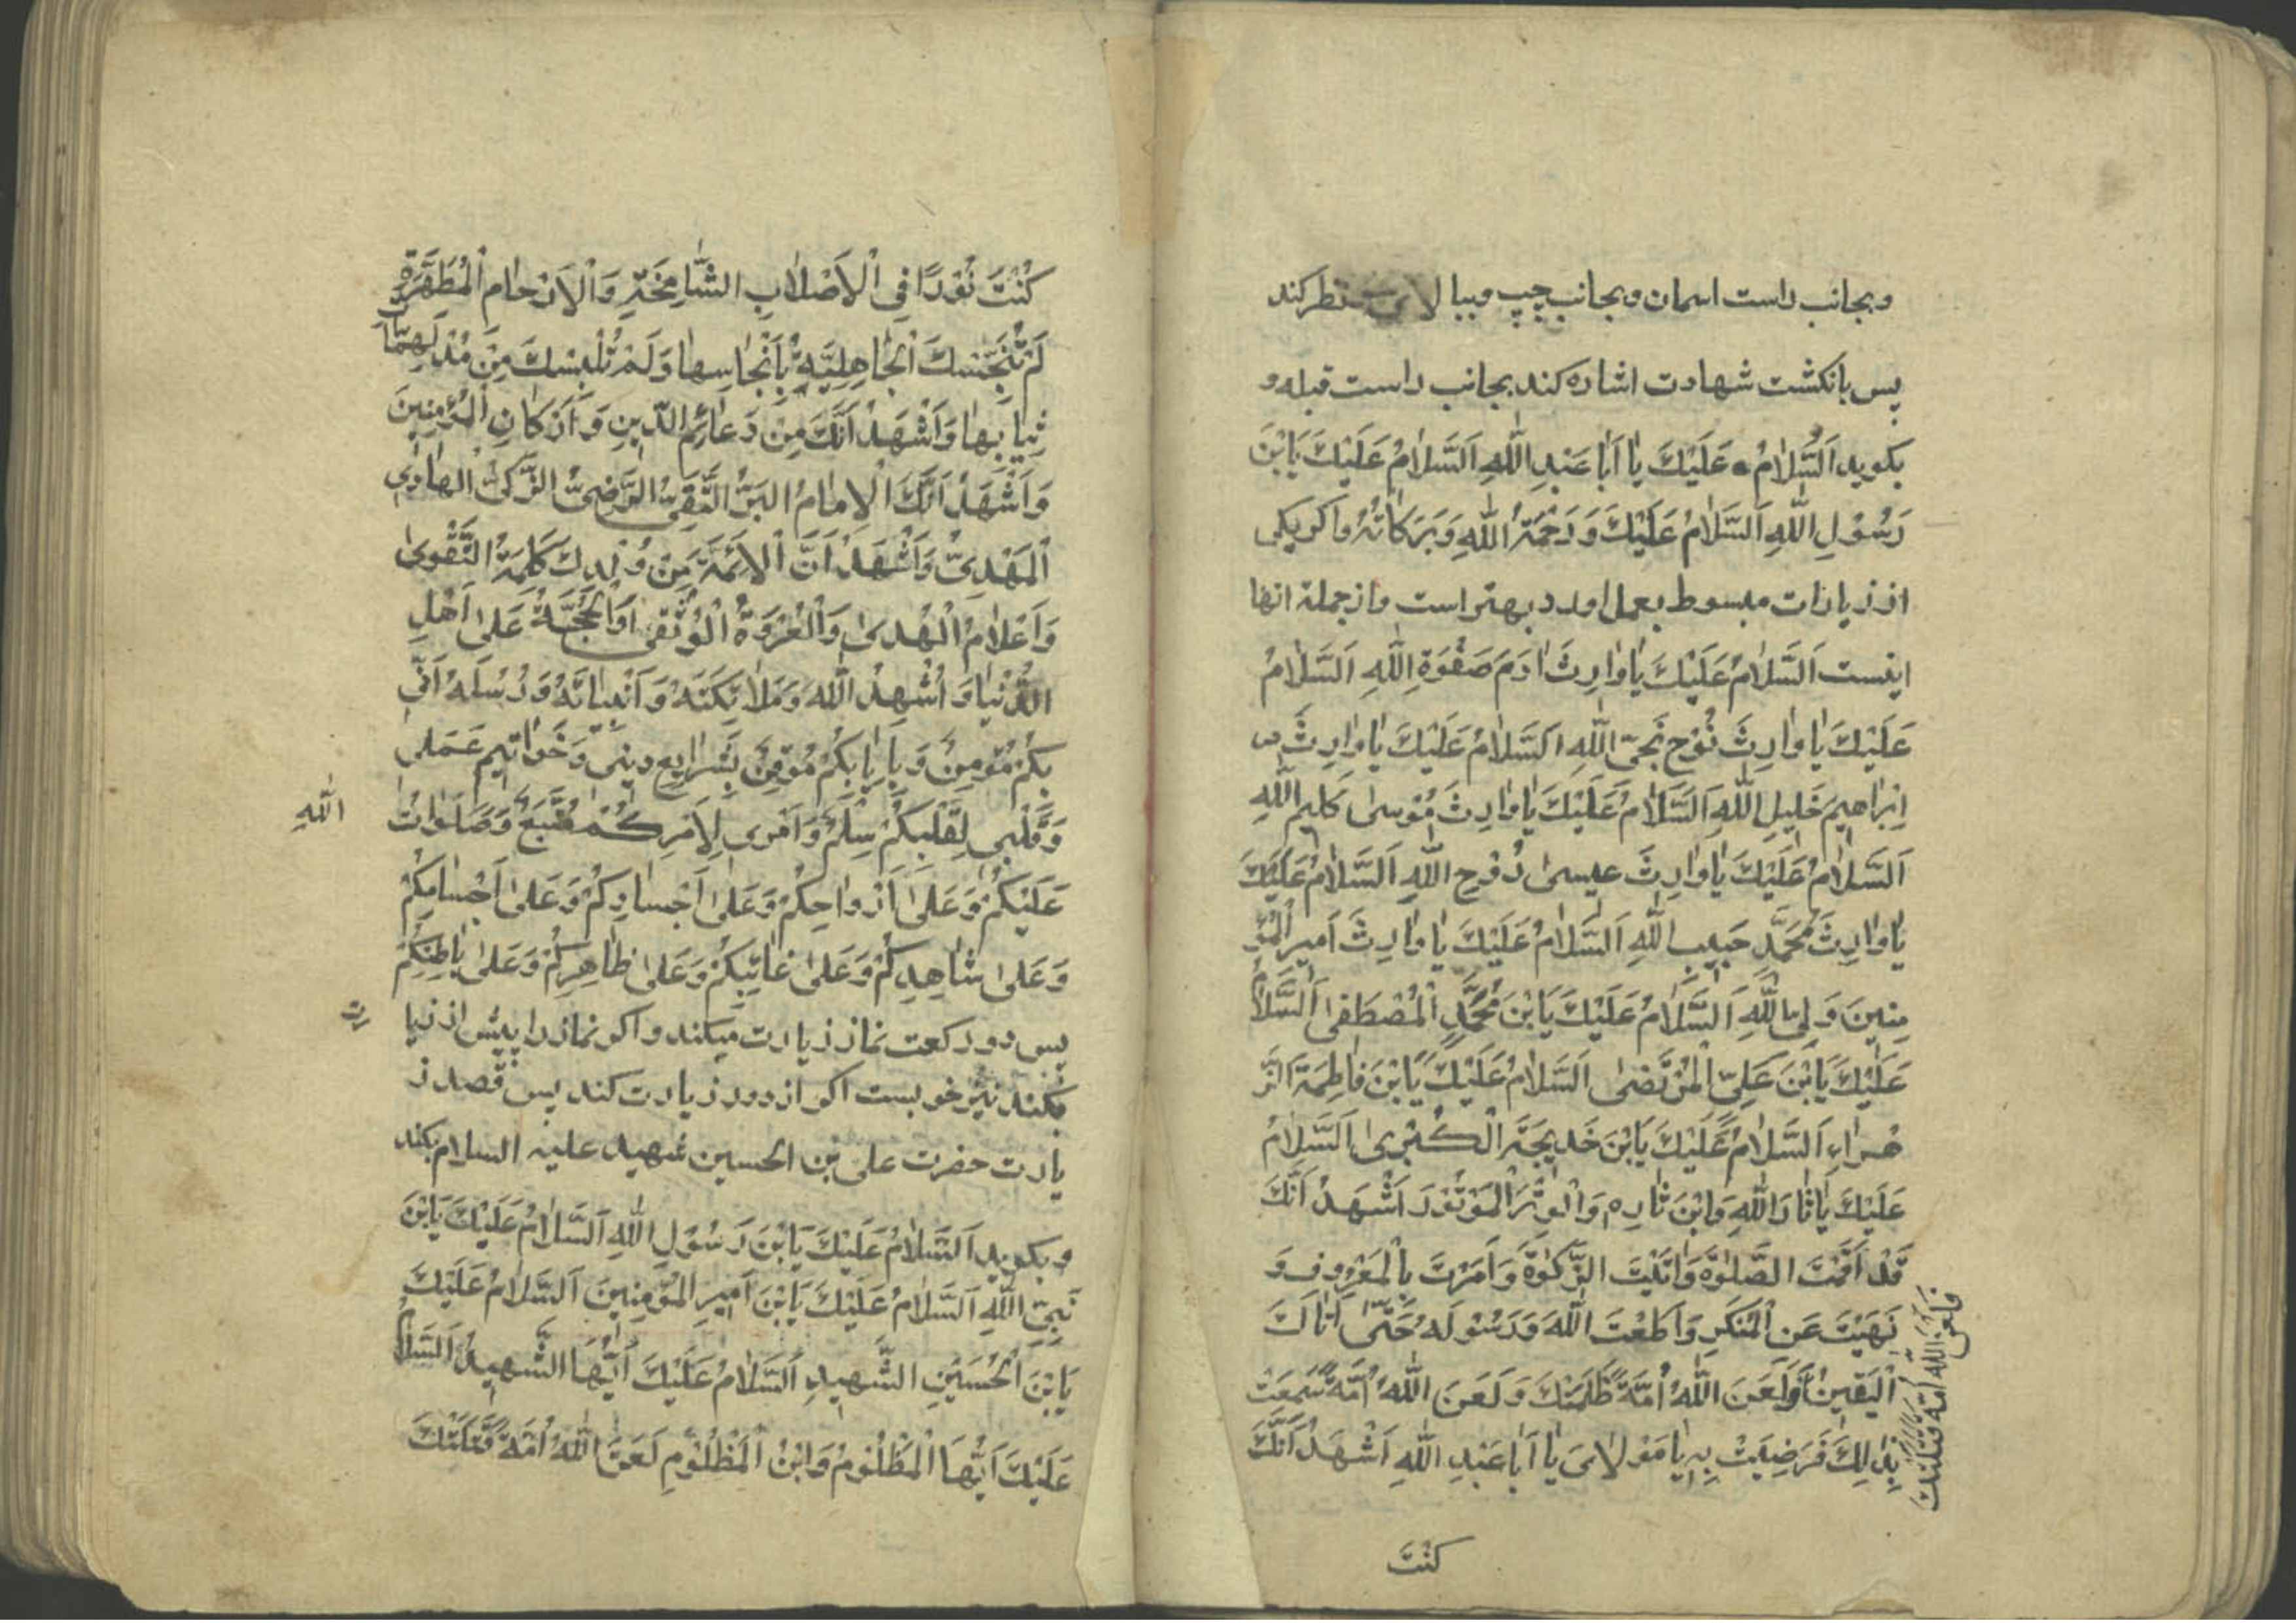 و بجانب راست اسمان و بجانب چپ و ببالای نظر کند
پس بانکشت شهادت اشاره کند بجانب راست قبله و
بکوید اَلسَّلامُ عَلَیْكَ یا اَبا عَبْدِ اللّٰهِ اَلسَّلامُ عَلَیْكَ یَابْنَ
رَسُوْلِ اللّٰهِ اَلسَّلامُ عَلَیْكَ وَ رَحْمَةُ اللّٰهِ وَ بَرَکاتُهُ واکر یکی
از زیارات مبسوط بعمل اورد بهتر است واز جملهٔ انها
اینست اَلسَّلامُ عَلَیْكَ یا وارِثَ ادَمَ صَفْوَةِ اللّٰهِ اَلسَّلامُ
عَلَیْكَ یا وارِثَ نُوْحٍ نَجِیِّ اللّٰهِ اَلسَّلامُ عَلَیْكَ یا وارِثَ
اِبْراهیمَ خَلیلِ اللّٰهِ اَلسَّلامُ عَلَیْكَ یا وارِثَ مُوْسیٰ کَلیمِ اللّٰهِ
اَلسَّلامُ عَلَیْكَ یا وارِثَ عیسیٰ رُوْحِ اللّٰهِ اَلسَّلامُ عَلَیْكَ
یا وارِثَ مُحَمَّدٍ حَبیبِ اللّٰهِ اَلسَّلامُ عَلَیْكَ یا وارِثَ اَمیرِ الْمُؤْ
مِنینَ وَلِیِّ اللّٰهِ اَلسَّلامُ عَلَیْكَ یَابْنَ مُحَمَّدٍ الْمُصْطَفیٰ اَلسَّلامُ
عَلَیْكَ یَابْنَ عَلِیِّ الْمُرْتَضیٰ اَلسَّلامُ عَلَیْكَ یَابْنَ فاطِمَةَ الزَّ
هْراءِ اَلسَّلامُ عَلَیْكَ یَابْنَ خَدیجَةَ الْکُبْریٰ اَلسَّلامُ
عَلَیْكَ یا ثارَ اللّٰهِ وَابْنَ ثارِهِ وَالْوِتْرَ الْمَوْتُوْرَ اَشْهَدُ اَنَّكَ
قَدْ اَقَمْتَ الصَّلوٰةَ وَاتَیْتَ الزَّکوٰةَ وَ اَمَرْتَ بِالْمَعْرُوفِ وَ
نَهَیْتَ عَنِ الْمُنْکَرِ وَاَطَعْتَ اللّٰهَ وَرَسُوْلَهُ حَتّیٰ اَتاكَ
الْیَقینُ وَلَعَنَ اللّٰهُ اُمَّةً ظَلَمَتْكَ وَلَعَنَ اللّٰهُ اُمَّةً سَمِعَتْ
بِذٰلِكَ فَرَضِیَتْ بِهِ یا مَوْلایَ یا اَبا عَبْدِ اللّٰهِ اَشْهَدُ اَنَّكَ
فَلَعَنَ اللّٰهُ اُمَّةً قَتَلَتْكَ
کُنْتَ
کُنْتَ نُوْرًا فِی الْاَصْلابِ الشّامِخَةِ وَالْاَرْحامِ الْمُطَهَّرَةِ
لَمْ تُنَجِّسْكَ الْجاهِلِیَّةُ بِاَنْجاسِها وَلَمْ تُلْبِسْكَ مِنْ مُدْلَهِمّاتِ
ثِیابِها وَاَشْهَدُ اَنَّكَ مِنْ دَعائِمِ الدّینِ وَ اَرْکانِ الْمُؤْمِنینَ
وَاَشْهَدُ اَنَّكَ الْاِمامُ الْبَرُّ التَّقِیُّ الرَّضِیُّ الزَّکِیُّ الْهادِی
الْمَهْدِیُّ وَاَشْهَدُ اَنَّ الْاَئِمَّةَ مِنْ وُلْدِكَ کَلِمَةُ التَّقْویٰ
وَاَعْلامُ الْهُدیٰ وَالْعُرْوَةُ الْوُثْقیٰ وَالْحُجَّةُ عَلیٰ اَهْلِ
الدُّنْیا وَاُشْهِدُ اللّٰهَ وَمَلائِکَتَهُ وَاَنْبِیائَهُ وَرُسُلَهُ اَنّی
بِکُمْ مُؤْمِنٌ وَ بِاِیابِکُمْ مُوْقِنٌ بِشَرایِعِ دینی وَخَواتیمِ عَمَلی
وَقَلْبی لِقَلْبِکُمْ سِلْمٌ وَاَمْری لِاَمْرِکُمْ مُتَّبِعٌ وَصَلَواتُ
اللّٰهِ
عَلَیْکُمْ وَعَلیٰ اَرْواحِکُمْ وَعَلیٰ اَجْسادِکُمْ وَعَلیٰ اَجْسامِکُمْ
وَعَلیٰ شاهِدِکُمْ وَعَلیٰ غائِبِکُمْ وَعَلیٰ ظاهِرِکُمْ وَعَلیٰ باطِنِکُمْ
پس دو رکعت نماز زیارت میکند واکر نماز را پیش از زیا
رت
بکند نیز خوبست اکر از دور زیارت کند پس قصد ز
یارت حضرت علی بن الحسین شهید علیه السلام بکند
و بکوید اَلسَّلامُ عَلَیْكَ یَابْنَ رَسُوْلِ اللّٰهِ اَلسَّلامُ عَلَیْكَ یَابْنَ
نَبِیِّ اللّٰهِ اَلسَّلامُ عَلَیْكَ یَابْنَ اَمیرِ الْمُؤْمِنینَ اَلسَّلامُ عَلَیْكَ
یَابْنَ الْحُسَیْنِ الشَّهیدِ اَلسَّلامُ عَلَیْكَ اَیُّهَا الشَّهیدُ اَلسَّلامُ
عَلَیْكَ اَیُّهَا الْمَظْلُوْمُ وَابْنُ الْمَظْلُوْمِ لَعَنَ اللّٰهُ اُمَّةً قَتَلَتْكَ